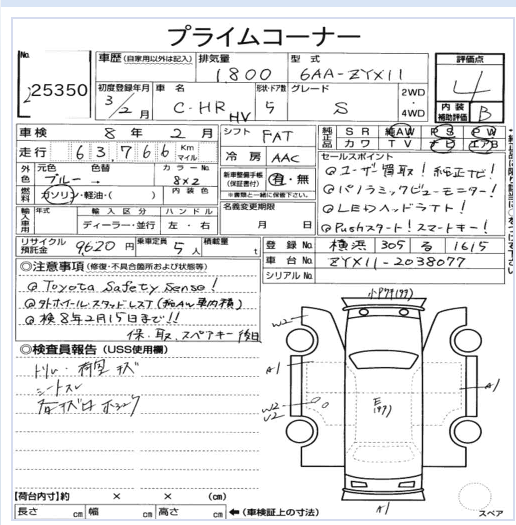 プライムコーナー
No. 25350
車歴 (自家用以外は記入) 排気量 1,800 型式 6AA-ZYX11
評価点 4
内装補助評価 B
初度登録年月 3/2月 車名 C-HR HV 形状・ドア数 5 グレード S 2WD・4WD
車検 8年2月 シフト FAT
純正品 SR 純AW PS PW
カワ TV ナビ エアB
走行 63,766 Km マイル 冷房 AAC
セールスポイント
外色 元色 ブルー → 色替 カラーNo. 8X2
新車整備手帳(保証書付) 有・無
※書類と一緒に保管下さい。
@ユーザー買取!純正ナビ!
@パノラミックビューモニター!
@LEDヘッドライト!
@Pushスタート!スマートキー!
燃料 ガソリン・軽油・( ) 内装色
名義変更期限 月 日
輸入車用 年式 輸入区分 ディーラー・並行 ハンドル 左・右
リサイクル預託金 9620円 乗車定員 5人 積載量 t
登録No. 横浜 305 る 1615
車台No. ZYX11-2038077
シリアルNo.
◎注意事項 (修復・不具合箇所および状態等)
@Toyota Safety Sense!
@検8年2月15日まで!!
保、取、スペアキー後日
◎検査員報告 (USS使用欄)
W2
A1
A1
W2
U2
A1
スペア
【荷台内寸】約 × × (cm)
長さ cm 幅 cm 高さ cm ←(車検証上の寸法)